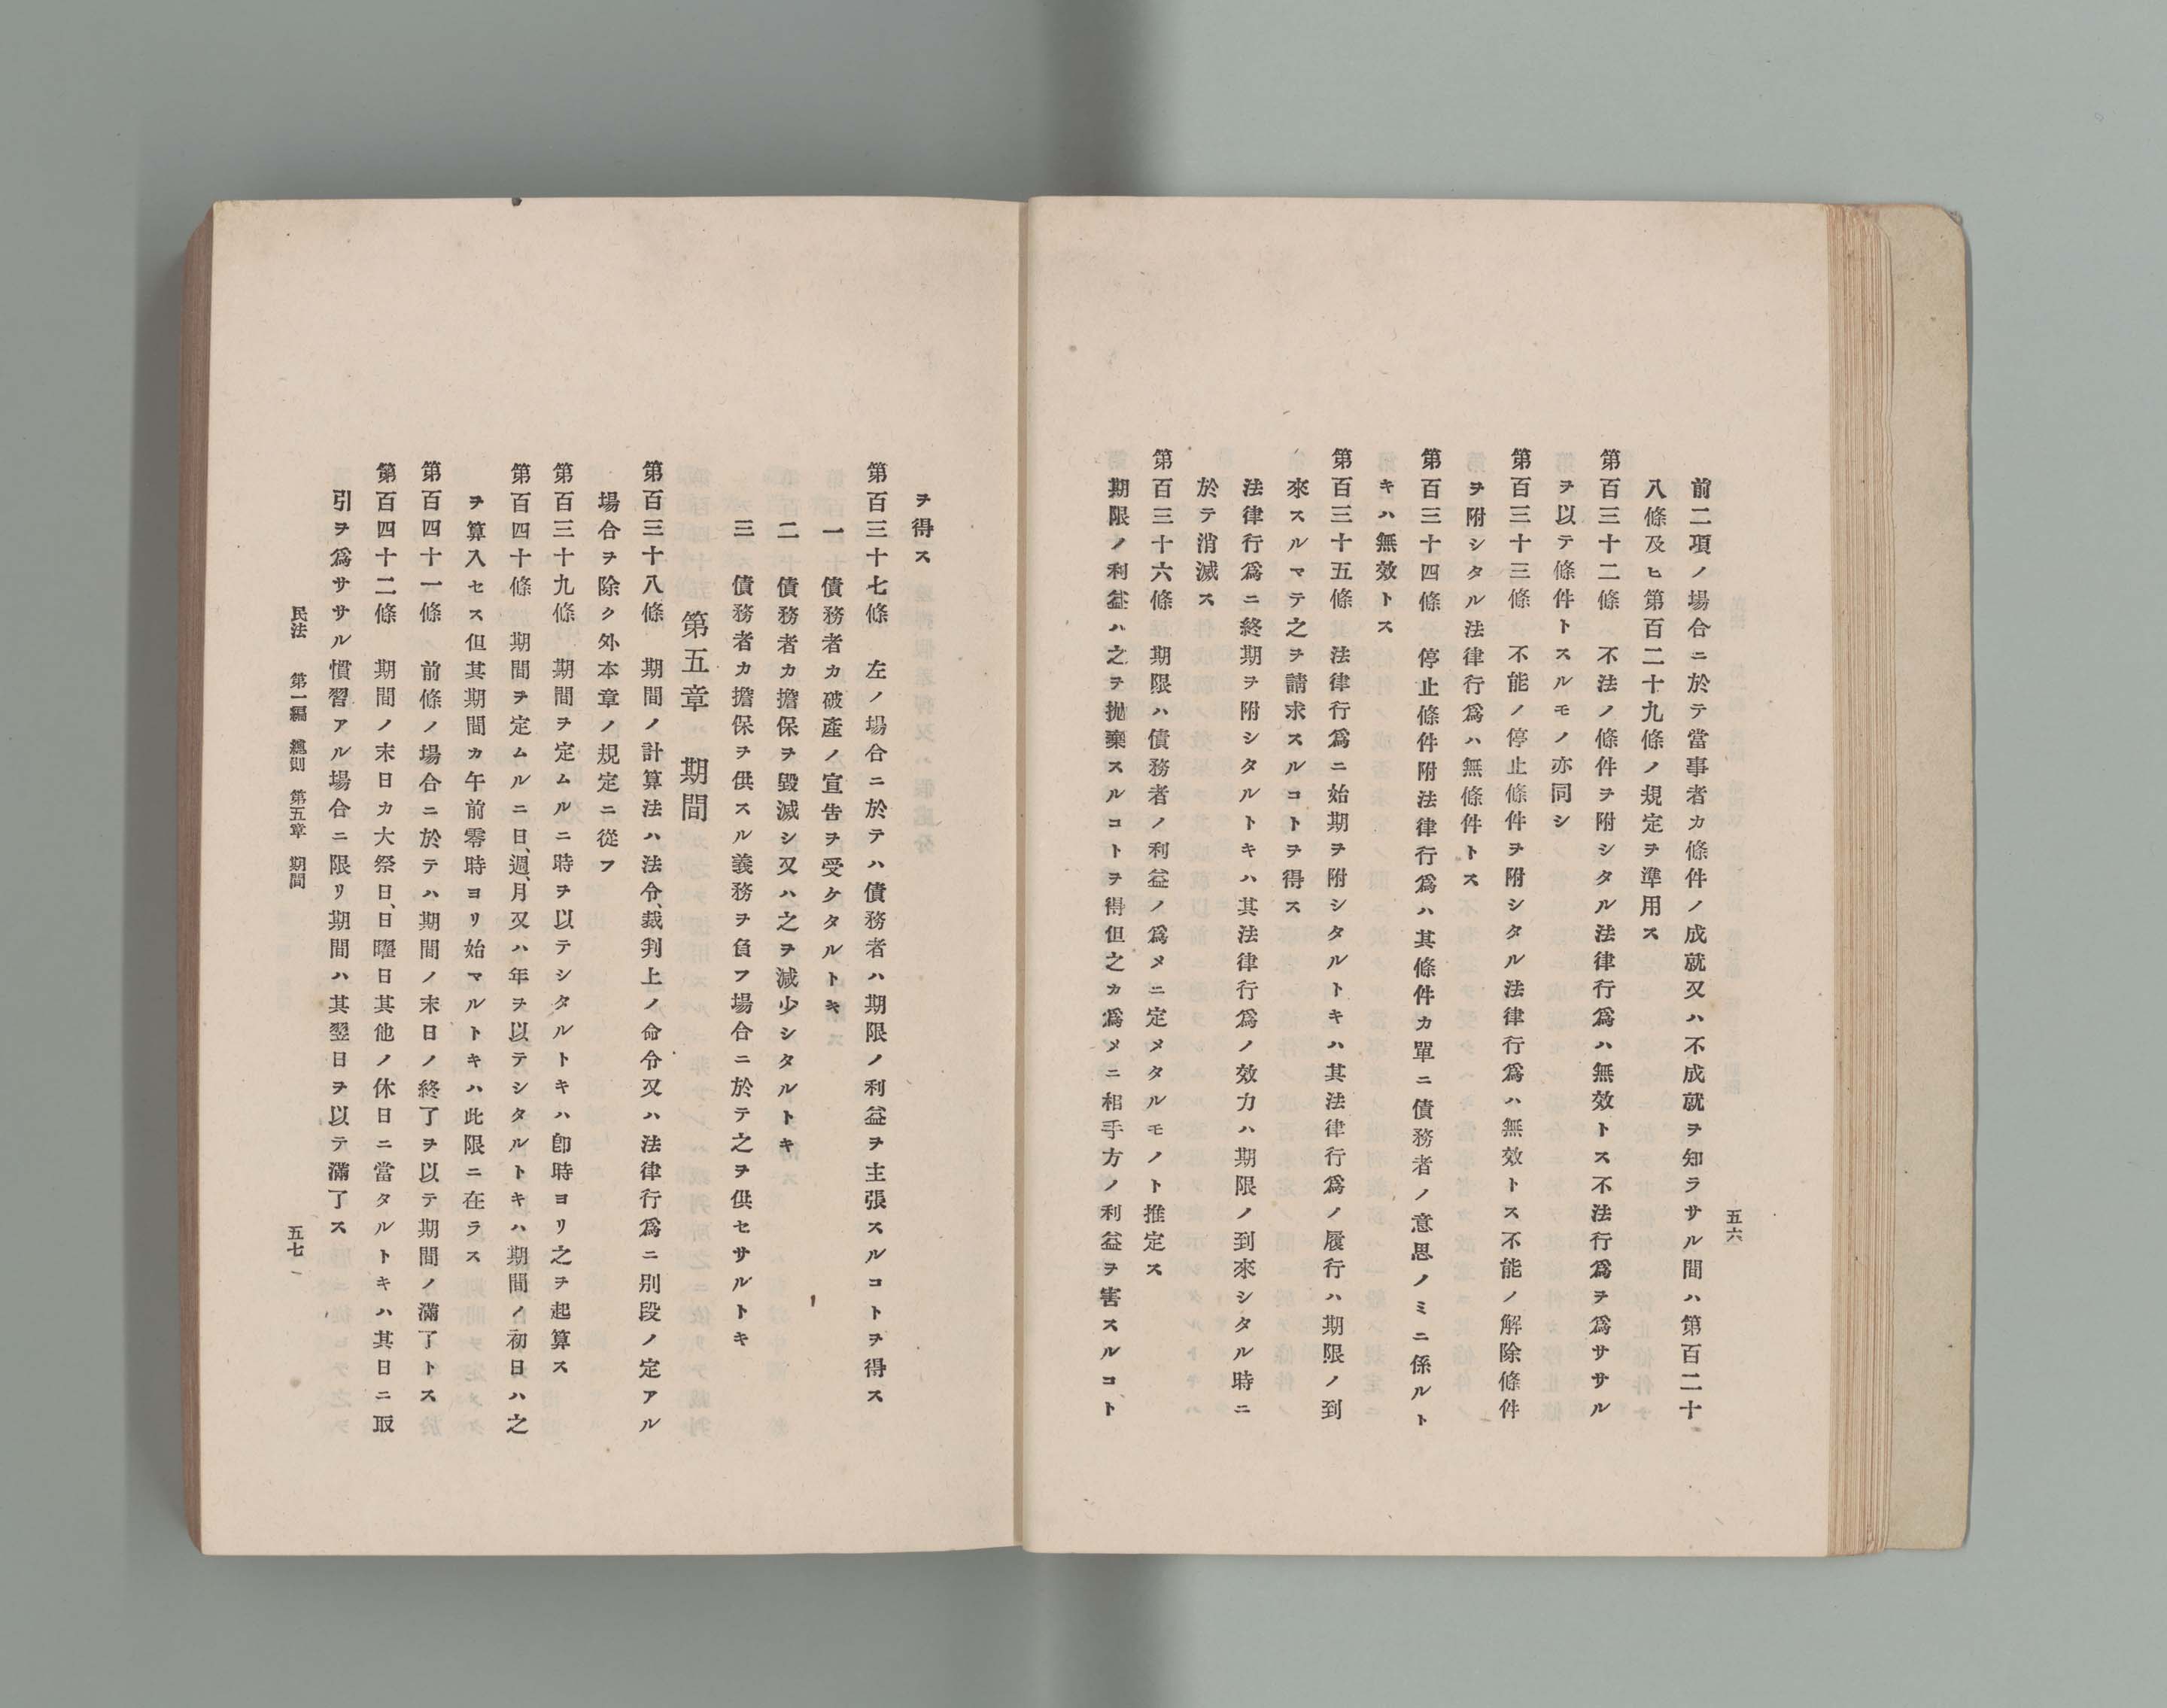 五六
前二項ノ場合ニ於テ當事者カ條件ノ成就又ハ不成就ヲ知ラサル間ハ第百二十
八條及ヒ第百二十九條ノ規定ヲ準用ス
第百三十二條　不法ノ條件ヲ附シタル法律行爲ハ無效トス不法行爲ヲ爲ササル
ヲ以テ條件トスルモノ亦同シ
第百三十三條　不能ノ停止條件ヲ附シタル法律行爲ハ無效トス不能ノ解除條件
ヲ附シタル法律行爲ハ無條件トス
第百三十四條　停止條件附法律行爲ハ其條件カ單ニ債務者ノ意思ノミニ係ルト
キハ無效トス
第百三十五條　法律行爲ニ始期ヲ附シタルトキハ其法律行爲ノ履行ハ期限ノ到
來スルマテ之ヲ請求スルコトヲ得ス
法律行爲ニ終期ヲ附シタルトキハ其法律行爲ノ效力ハ期限ノ到來シタル時ニ
於テ消滅ス
第百三十六條　期限ハ債務者ノ利益ノ爲メニ定メタルモノト推定ス
期限ノ利益ハ之ヲ抛棄スルコトヲ得但之カ爲メニ相手方ノ利益ヲ害スルコト
ヲ得ス
第百三十七條　左ノ場合ニ於テハ債務者ハ期限ノ利益ヲ主張スルコトヲ得ス
一　債務者カ破產ノ宣告ヲ受ケタルトキ
二　債務者カ擔保ヲ毀滅シ又ハ之ヲ減少シタルトキ
三　債務者カ擔保ヲ供スル義務ヲ負フ場合ニ於テ之ヲ供セサルトキ
第五章　期間
第百三十八條　期間ノ計算法ハ法令、裁判上ノ命令又ハ法律行爲ニ別段ノ定アル
場合ヲ除ク外本章ノ規定ニ從フ
第百三十九條　期間ヲ定ムルニ時ヲ以テシタルトキハ卽時ヨリ之ヲ起算ス
第百四十條　期間ヲ定ムルニ日、週、月又ハ年ヲ以テシタルトキハ期間ノ初日ハ之
ヲ算入セス但其期間カ午前零時ヨリ始マルトキハ此限ニ在ラス
第百四十一條　前條ノ場合ニ於テハ期間ノ末日ノ終了ヲ以テ期間ノ滿了トス
第百四十二條　期間ノ末日カ大祭日、日曜日其他ノ休日ニ當タルトキハ其日ニ取
引ヲ爲ササル慣習アル場合ニ限リ期間ハ其翌日ヲ以テ滿了ス
民法　第一編　總則　第五章　期間　五七